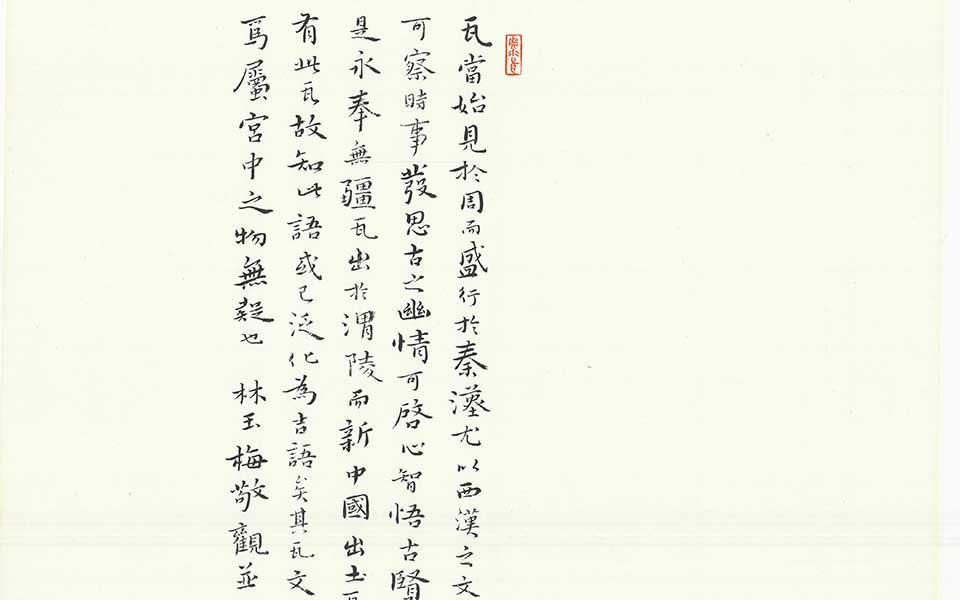 瓦當始見於周而盛行於秦漢尤以西漢之文
可察時事發思古之幽情可啓心智悟古賢
是永奉無疆瓦出於渭陵而新中國出土瓦
有此瓦故知此語或已泛化為吉語矣其瓦文
爲屬宮中之物無疑也 林玉梅敬觀並